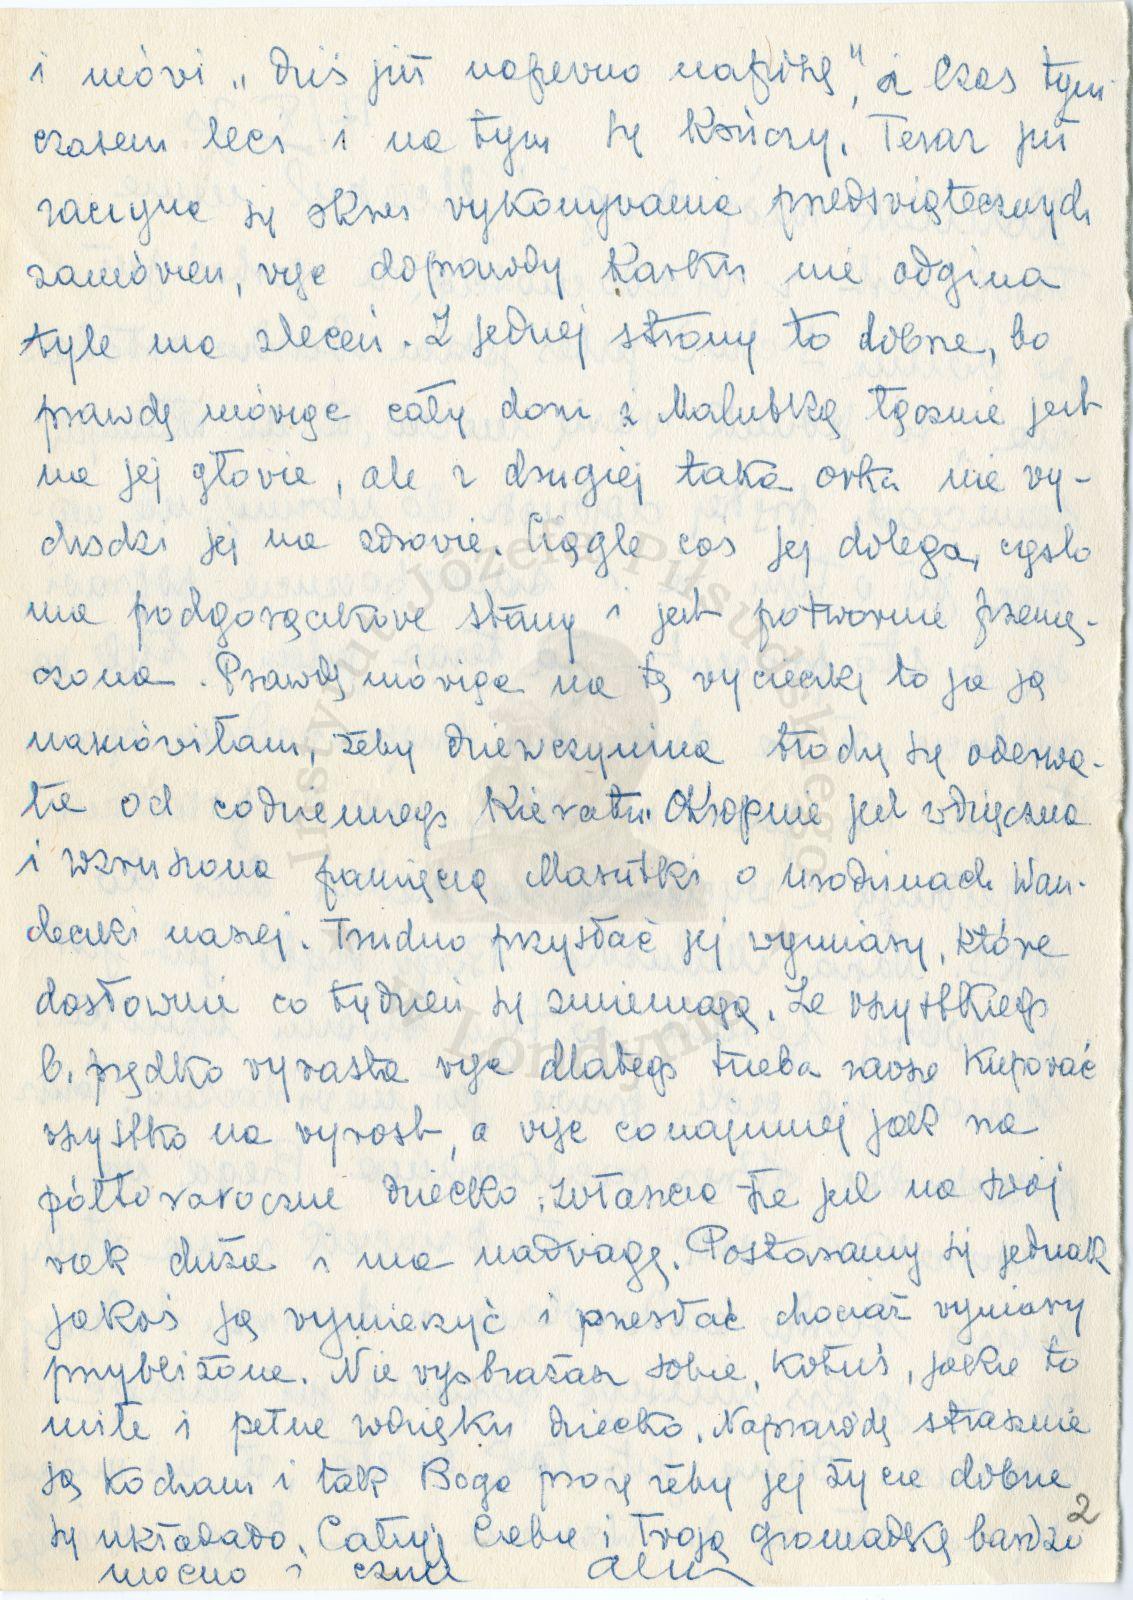 i mówi „dziś już napewno napiszę", a czas tym
czasem leci i na tym się kończy. Teraz już
zaczyna się okres wykonywania przedświątecznych
zamówień, więc doprawdy karku nie odgina
tyle ma zleceń. Z jednej strony to dobrze, bo
prawdę mówiąc cały dom z Malubką łącznie jest
na jej głowie, ale z drugiej taka orka nie wy-
chodzi jej na zdrowie. Ciągle coś jej dolega, często
ma podgorączkowe stany i jest potwornie przemę-
czona. Prawdę mówiąc na tę wycieczkę to ja ją
namówiłam, żeby dziewczynina trochę się oderwa-
ła od codziennego kieratu. Okropnie jest wdzięczna
i wzruszona pamięcią Masutki o urodzinach Wan-
deczki naszej. Trudno przysłać jej wymiary, które
dosłownie co tydzień się zmieniają. Ze wszystkiego
b. prędko wyrasta więc dlatego trzeba zawsze kupować
wszystko na wyrost, a więc conajmniej jak na
półtoraroczne dziecko, zwłaszcza że jest na swój
wiek duża i ma nadwagę. Postaramy się jednak
jakoś ją wymierzyć i przesłać chociaż wymiary
przybliżone. Nie wyobrażasz sobie, Kotuś, jakie to
miłe i pełne wdzięku dziecko. Naprawdę strasznie
ją kocham i tak Boga proszę żeby jej życie dobrze
się układało. Całuję Ciebie i Twoją gromadkę bardzo
mocno i czule
2
Instytut Józefa Piłsudskiego
w Londynie